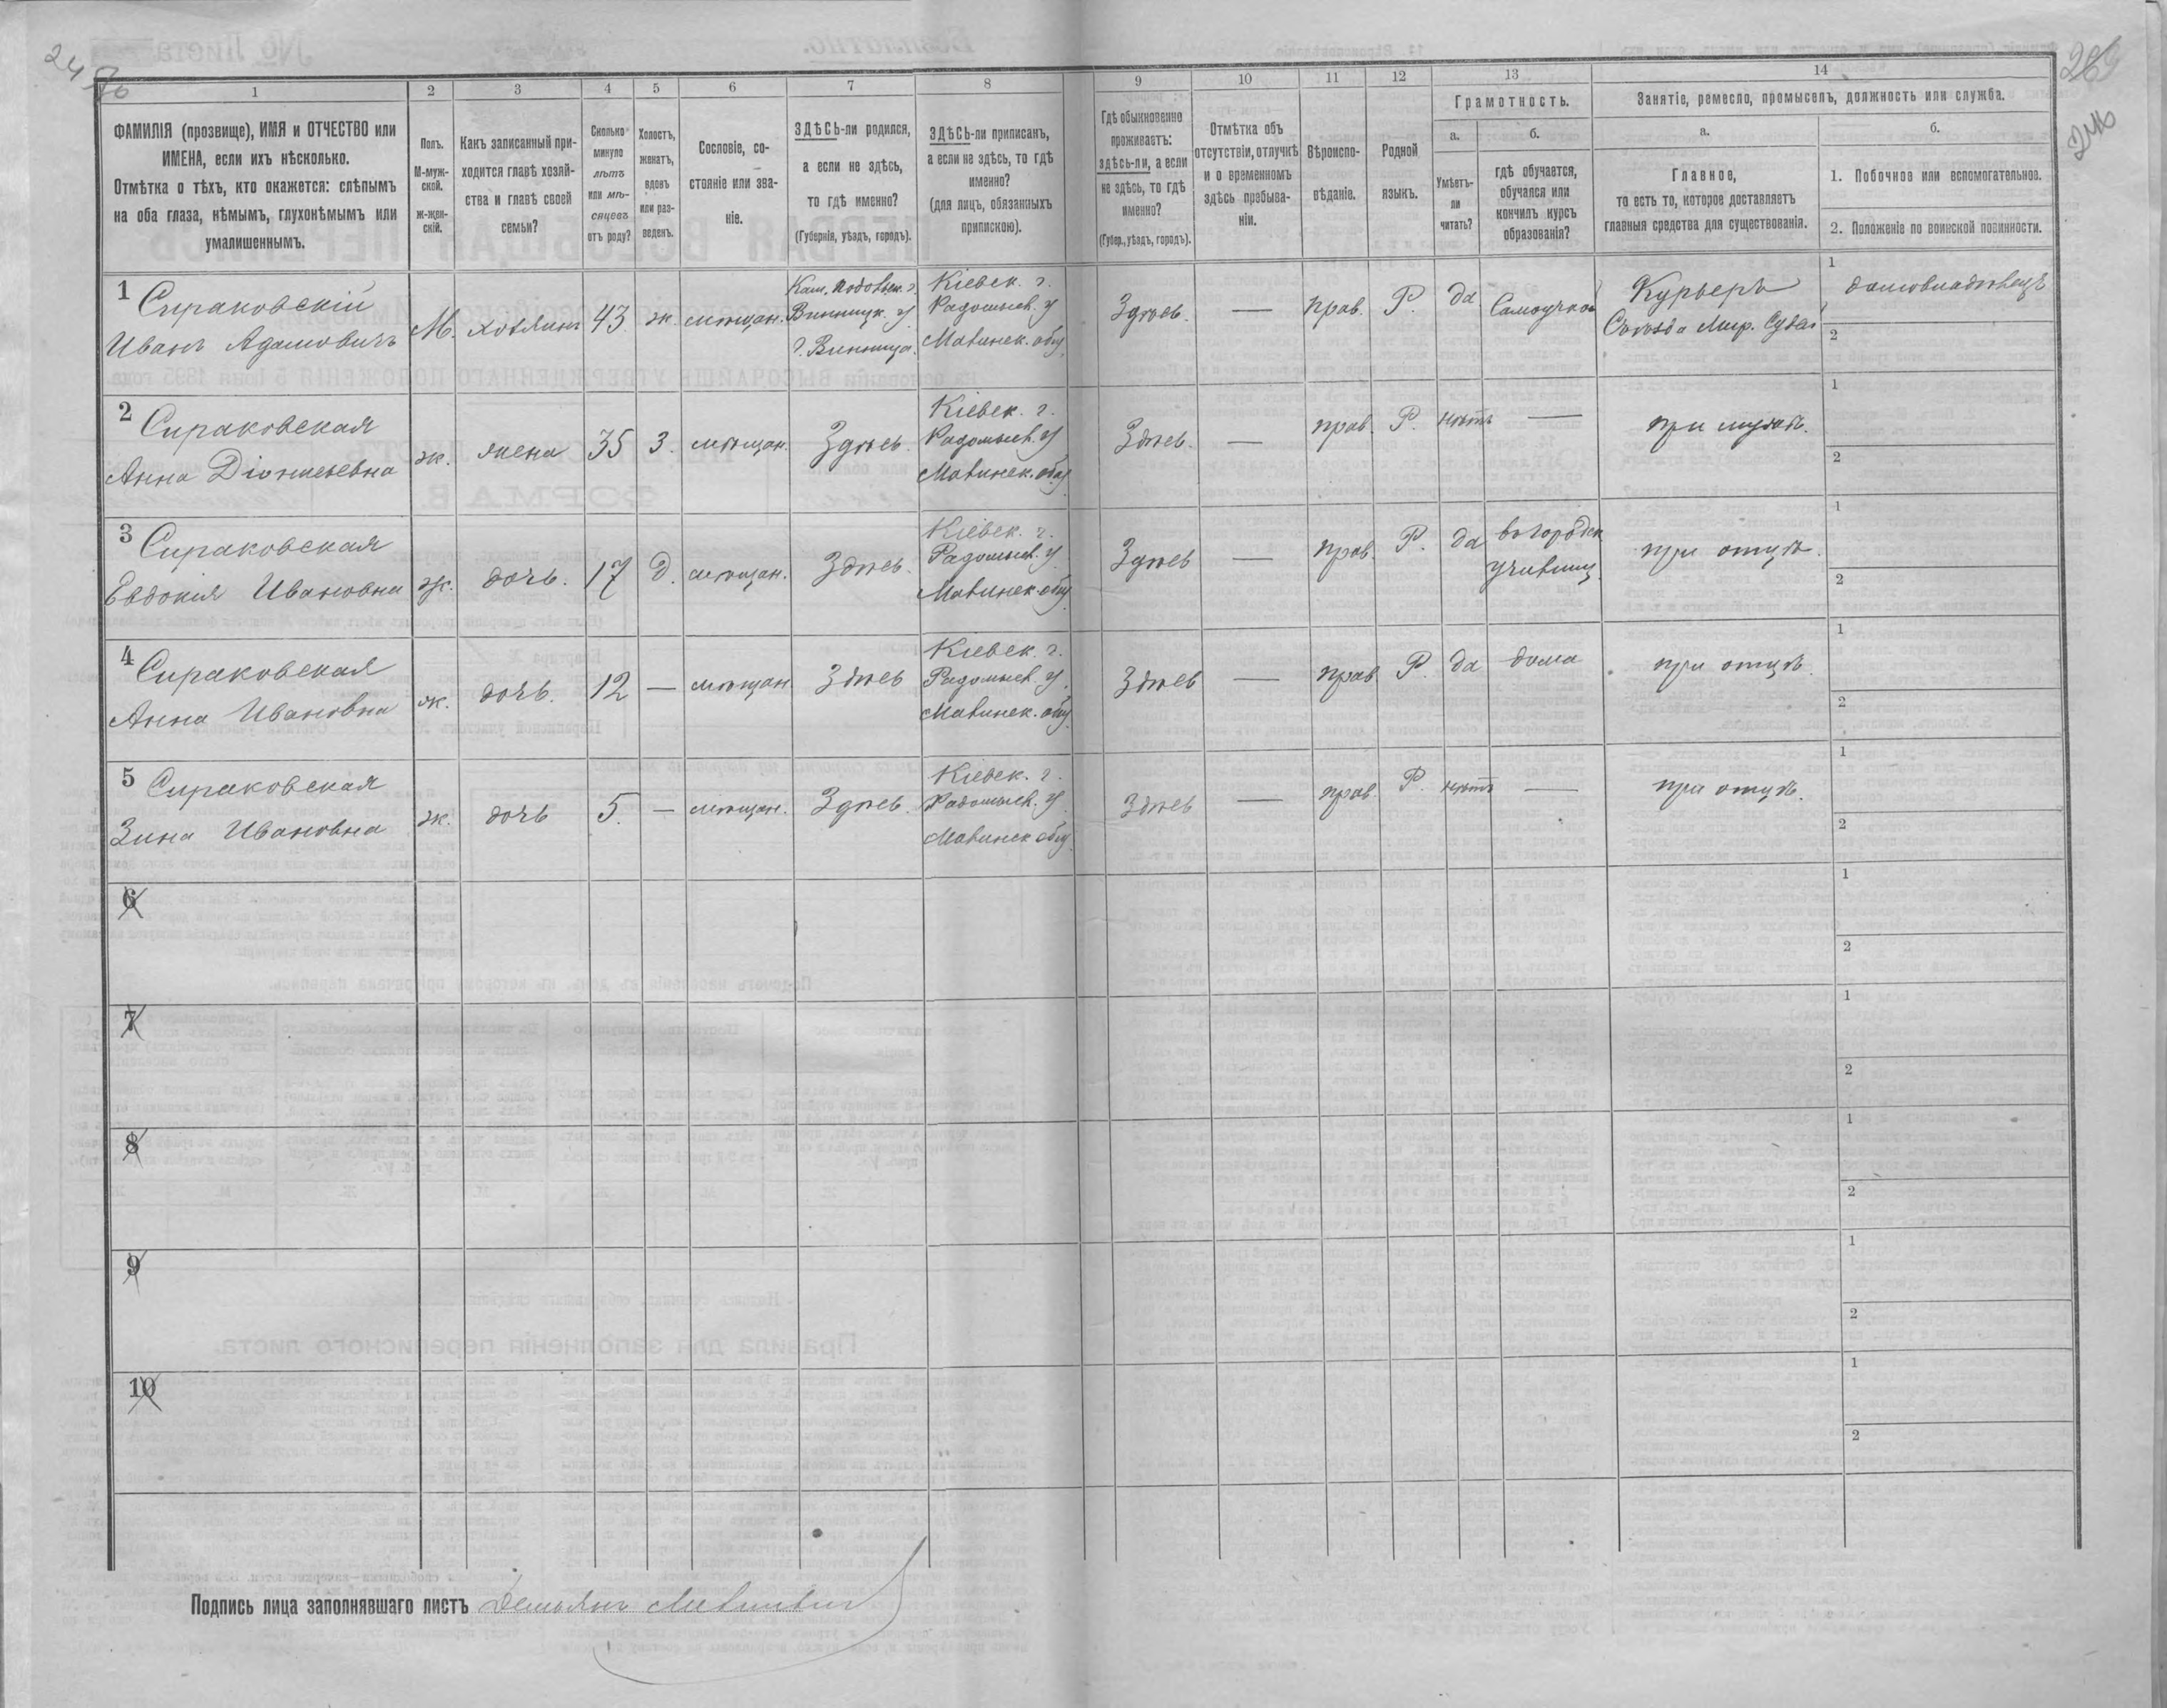 24
1
2
3
4
5
6
7
8
9
10
11
12
13
14
ФАМИЛІЯ (прозвище), ИМЯ и ОТЧЕСТВО или
ИМЕНА, если ихъ нѣсколько.
Отмѣтка о тѣхъ, кто окажется: слѣпымъ
на оба глаза, нѣмымъ, глухонѣмымъ или
умалишеннымъ.
Полъ.
М-муж-
ской.
ж-жен-
скій.
Какъ записанный при-
ходится главѣ хозяй-
ства и главѣ своей
семьи?
Сколько
минуло
лѣтъ
или мѣ-
сяцевъ
отъ роду?
Холостъ,
женатъ,
вдовъ
или раз-
веденъ.
Сословіе, со-
стояніе или зва-
ніе.
ЗДѢСЬ-ли родился,
а если не здѣсь,
то гдѣ именно?
(Губернія, уѣздъ, городъ).
ЗДѢСЬ-ли приписанъ,
а если не здѣсь, то гдѣ
именно?
(для лицъ, обязанныхъ
припискою).
Гдѣ обыкновенно
проживаетъ:
здѣсь-ли, а если
не здѣсь, то гдѣ
именно?
(Губер., уѣздъ, городъ).
Отмѣтка объ
отсутствіи, отлучкѣ
и о временномъ
здѣсь пребыва-
ніи.
Вѣроиспо-
вѣданіе.
Родной
языкъ.
Грамотность.
а.
Умѣетъ-
ли
читать?
б.
гдѣ обучается,
обучался или
кончилъ курсъ
образованія?
Занятіе, ремесло, промыселъ, должность или служба.
а.
Главное,
то есть то, которое доставляетъ
главныя средства для существованія.
б.
1. Побочное или вспомогательное.
2. Положеніе по воинской повинности.
1
Сираковскій
Иванъ Адамовичъ
М.
хозяинъ
43
ж
мѣщан.
Кам. Подольск. г.
Винницк. у
г. Винница.
Кіевск. г.
Радомысл. у
Малинск. общ.
Здѣсь.
—
прав.
Р.
да
Самоучкой
Курьеръ
Съѣзда Мир. Судей
1
домовладѣлецъ
2
2
Сираковская
Анна Діонисьевна
ж.
жена
35
З.
мѣщан.
Здѣсь.
Кіевск. г.
Радомысл. у
Малинск. общ.
Здѣсь.
—
прав.
Р.
нѣтъ
—
при мужѣ.
1
2
3
Сираковская
Евдокія Ивановна
ж.
дочь.
17
Д.
мѣщан.
Здѣсь.
Кіевск. г.
Радомысл. у
Малинск. общ.
Здѣсь
—
прав.
Р.
да
въ городск
училищ.
при отцѣ.
1
2
4
Сираковская
Анна Ивановна
ж.
дочь.
12
—
мѣщан.
Здѣсь
Кіевск. г.
Радомысл. у.
Малинск. общ.
Здѣсь
—
прав.
Р.
да
дома
при отцѣ.
1
2
5
Сираковская
Зина Ивановна
ж.
дочь
5.
—
мѣщан.
Здѣсь.
Кіевск. г.
Радомысл. у
Малинск общ.
Здѣсь
—
прав.
Р.
нѣтъ
—
при отцѣ.
1
2
6
1
2
7
1
2
8
1
2
9
1
2
10
1
2
Подпись лица заполнявшаго листъ Демьянъ